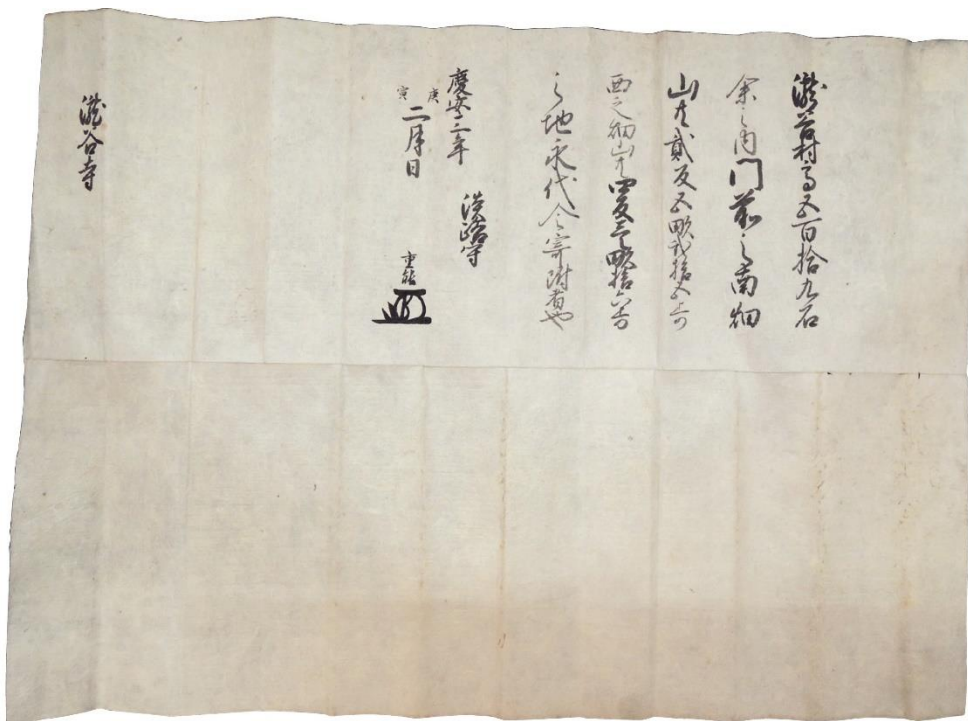 瀧谷村高五百拾九石
余之内門前之南畑
山共貳反五畝貳拾五歩
西之畑山共四反三畝拾六歩
之地永代令寄附者也
慶安三年
庚寅
二月日
淡路守
重能
瀧谷寺